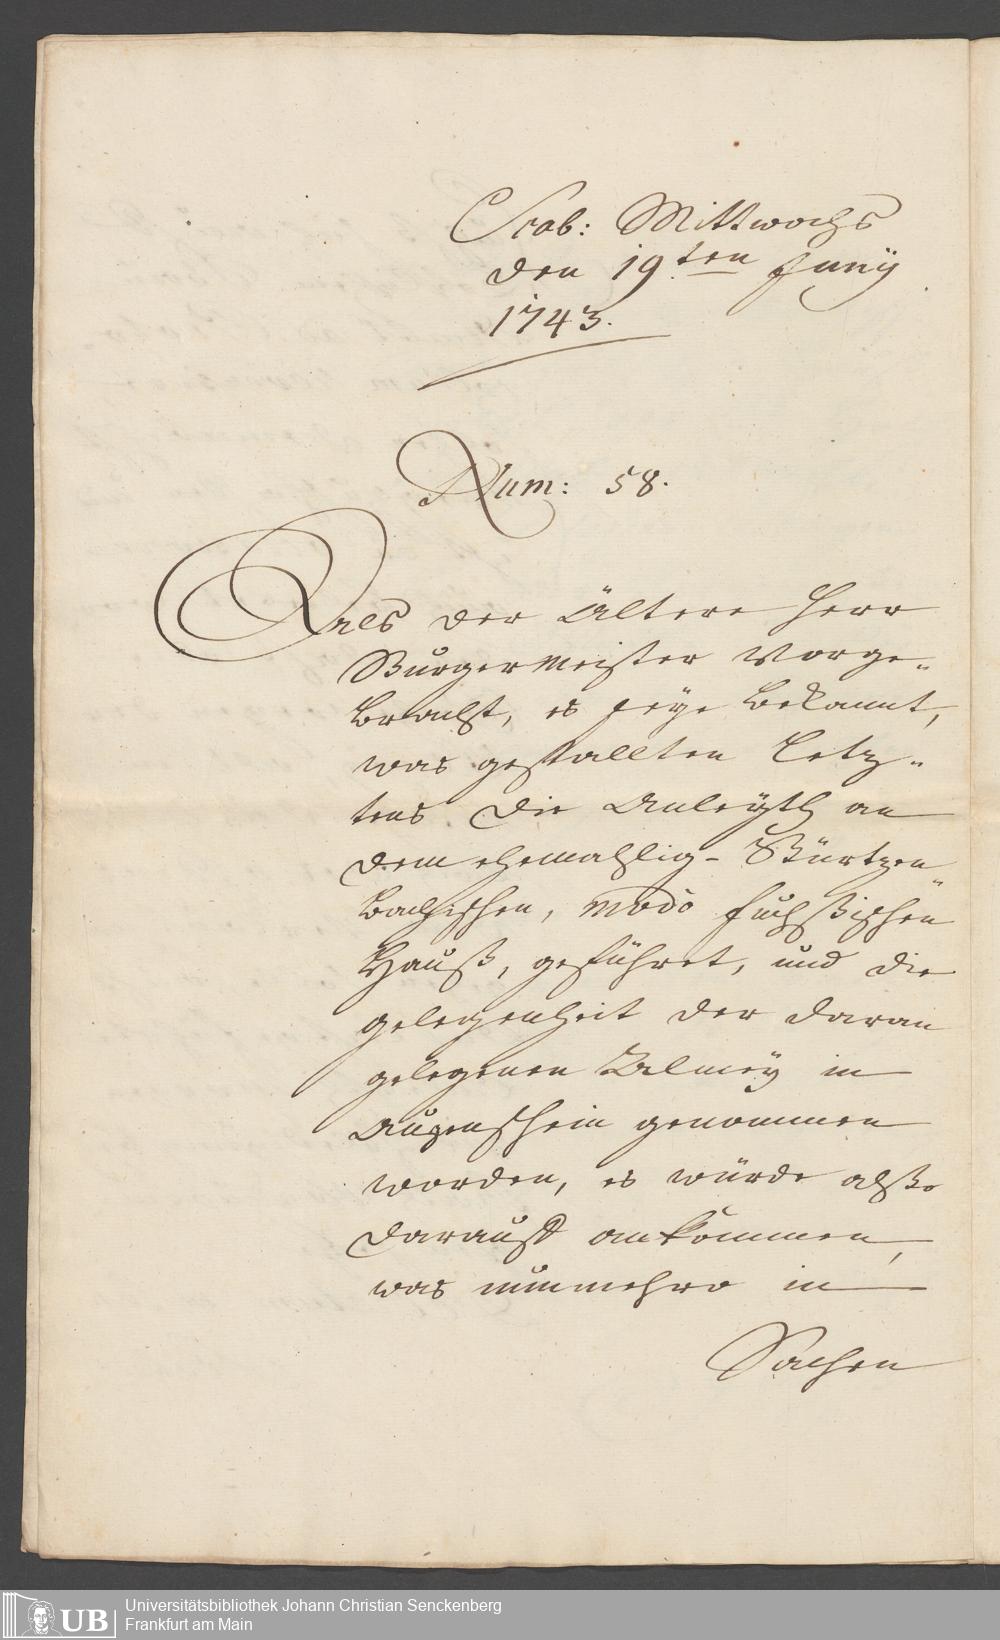 Scab: Mittwochs
den 19.ten Juny
1743.
Num: 58.
Als der Ältere Herr
Burgermeister Vorge-
bracht, es seye bekannt,
was gestallten Letz-
tens die Anleyth an
dem ehemahlig-
bachischen, modò Fuchsischen
Hauß, geführet, und die
gelegenheit der daran
gelegenen Allmey in
Augenschein genommen
worden, es würde also
darauff ankommen,
was nunmehro in
Sachen
UB Universitätsbibliothek Johann Christian Senckenberg
Frankfurt am Main